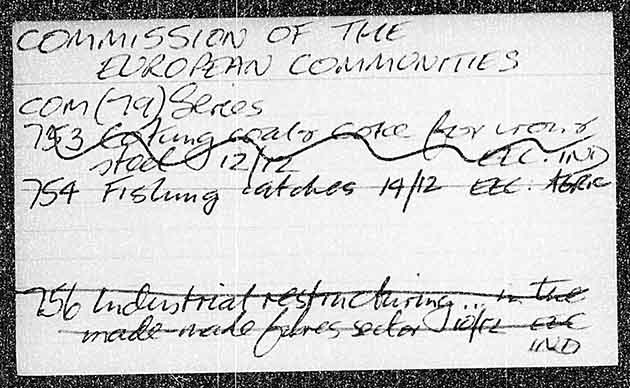 COMMISSION OF THE
EUROPEAN COMMUNITIES
COM(79) Series
753 Coking coal & coke for iron &
steel 12/12 EEC: IND
754 Fishing catches 14/12 EEC: AGRIC
756 Industrial restructuring... in the
made-made fibres sector 10/12 EEC
IND